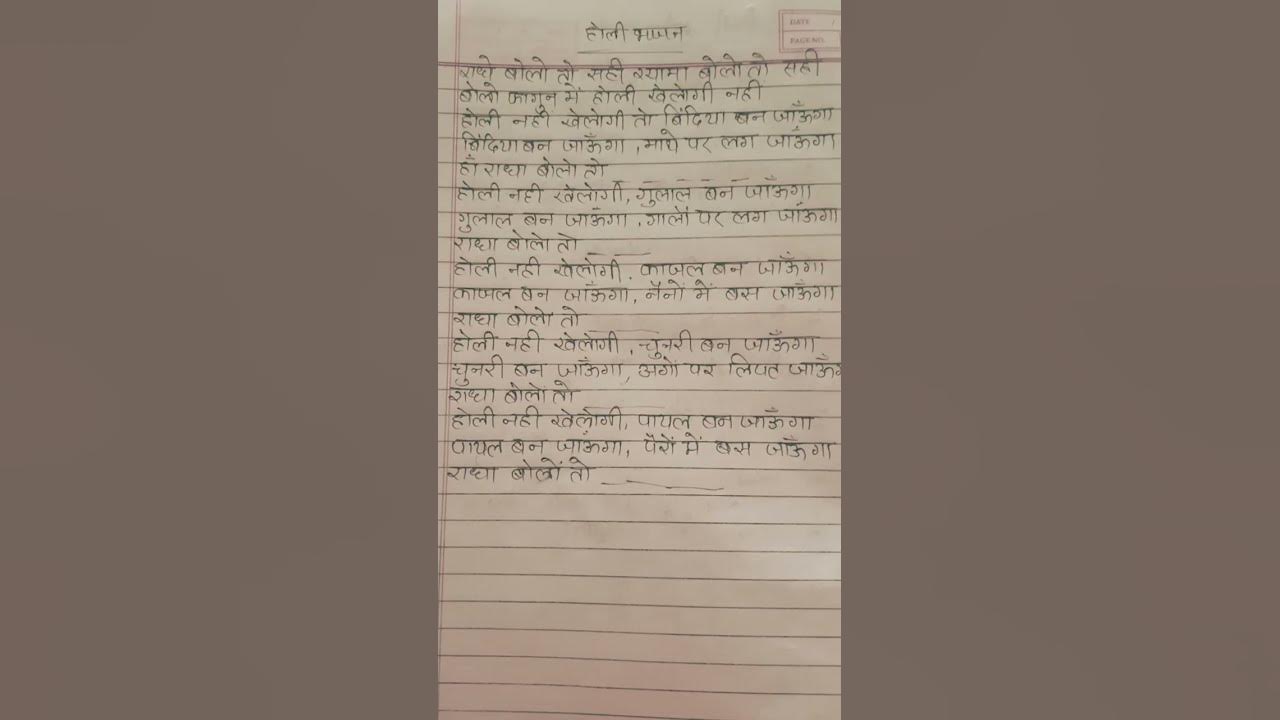 होली भजन
DATE /
PAGE NO.
राधे बोलो तो सही श्यामा बोलो तो सही
बोलो फागुन में होली खेलोगी नही
होली नही खेलोगी तो बिंदिया बन जाऊँगा
बिंदिया बन जाऊँगा, माथे पर लग जाऊँगा
हाँ राधा बोलो तो
होली नही खेलोगी, गुलाल बन जाऊँगा
गुलाल बन जाऊँगा, गालों पर लग जाऊँगा
राधा बोलो तो
होली नही खेलोगी, काजल बन जाऊँगा
काजल बन जाऊँगा, नैनों में बस जाऊँगा
राधा बोलो तो
होली नही खेलोगी, चुनरी बन जाऊँगा
चुनरी बन जाऊँगा, अगों पर लिपट जाऊँगा
राधा बोलों तो
होली नही खेलोगी, पायल बन जाऊँगा
पायल बन जाऊँगा, पैरों में बस जाऊँगा
राधा बोलों तो